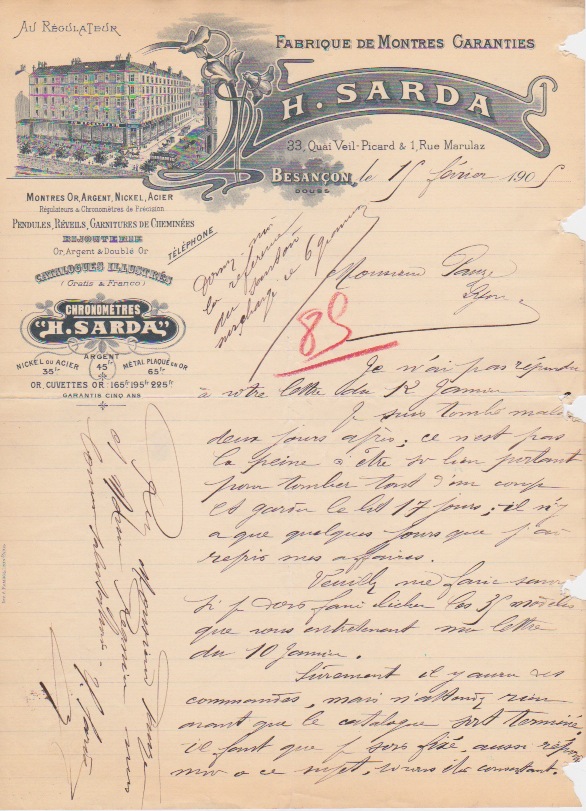 AU RÉGULATEUR
FABRIQUE DE MONTRES GARANTIES
H. SARDA
33, Quai Veil-Picard & 1, Rue Marulaz
BESANÇON, le 15 février 1905
DOUBS
MONTRES OR, ARGENT, NICKEL, ACIER
Régulateurs & Chronomètres de Précision
PENDULES, RÉVEILS, GARNITURES DE CHEMINÉES
BIJOUTERIE
Or, Argent & Doublé Or
CATALOGUES ILLUSTRÉS
(Gratis & Franco)
TÉLÉPHONE
CHRONOMÈTRES
"H. SARDA"
NICKEL OU ACIER 35fr
ARGENT 45fr
MÉTAL PLAQUÉ OR 65fr
OR, CUVETTES OR 165fr 195fr 225fr
GARANTIS CINQ ANS
la référence
du
6 Janvier
89
Monsieur
Lyon
Je n'ai pas répondu
à votre lettre du 12 Janvier.
Je suis tombé malade
deux jours après; ce n'est pas
la peine d'être si bien portant
pour tomber tout d'un coup
et garder le lit 17 jours; il n'y
a que quelques jours que j'ai
repris mes affaires.
Veuillez me faire savoir
si je dois faire clicher les 35 modèles
que vous entretenent ma lettre
du 10 Janvier.
Sûrement il y aura des
commandes, mais n'attendez rien
avant que le catalogue soit terminé
il faut que je sois fixé, aussi répondez
moi à ce sujet,
Monsieur
et Madame
mes
salutations
H. Sarda